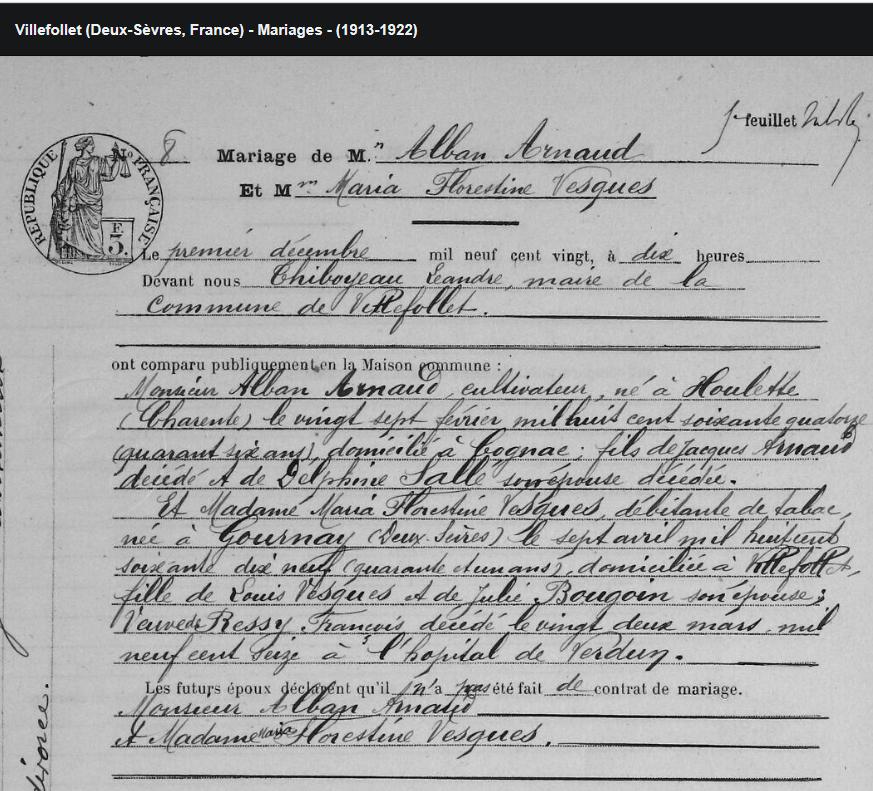 Villefollet (Deux-Sèvres, France) - Mariages - (1913-1922)
feuillet
RÉPUBLIQUE FRANÇAISE
F.
3.
N° 8. Mariage de M.n Alban Arnaud
Et Mme Maria Florestine Vesques
Le premier décembre mil neuf cent vingt, à dix heures
Devant nous Thiboyeau Léandre, maire de la
Commune de Villefollet.
ont comparu publiquement en la Maison commune :
Monsieur Alban Arnaud, cultivateur, né à Houlette
(Charente) le vingt sept février mil huit cent soixante quatorze
(quarant six ans), domicilié à Cognac ; fils de Jacques Arnaud
décédé et de Delphine Sallé son épouse décédée.
Et Madame Maria Florestine Vesques, débitante de tabac,
née à Gournay (Deux-Sèvres) le sept avril mil huit cent
soixante dix neuf (quarante et un ans), domiciliée à Villefollet,
fille de Louis Vesques et de Julie Bougoin son épouse ;
Veuve de Ressy François décédé le vingt deux mars mil
neuf cent seize à l'hopital de Verdun.
Les futurs époux déclarent qu'il n'a pas été fait de contrat de mariage.
Monsieur Alban Arnaud
et Madame Maria Florestine Vesques.
divorce.